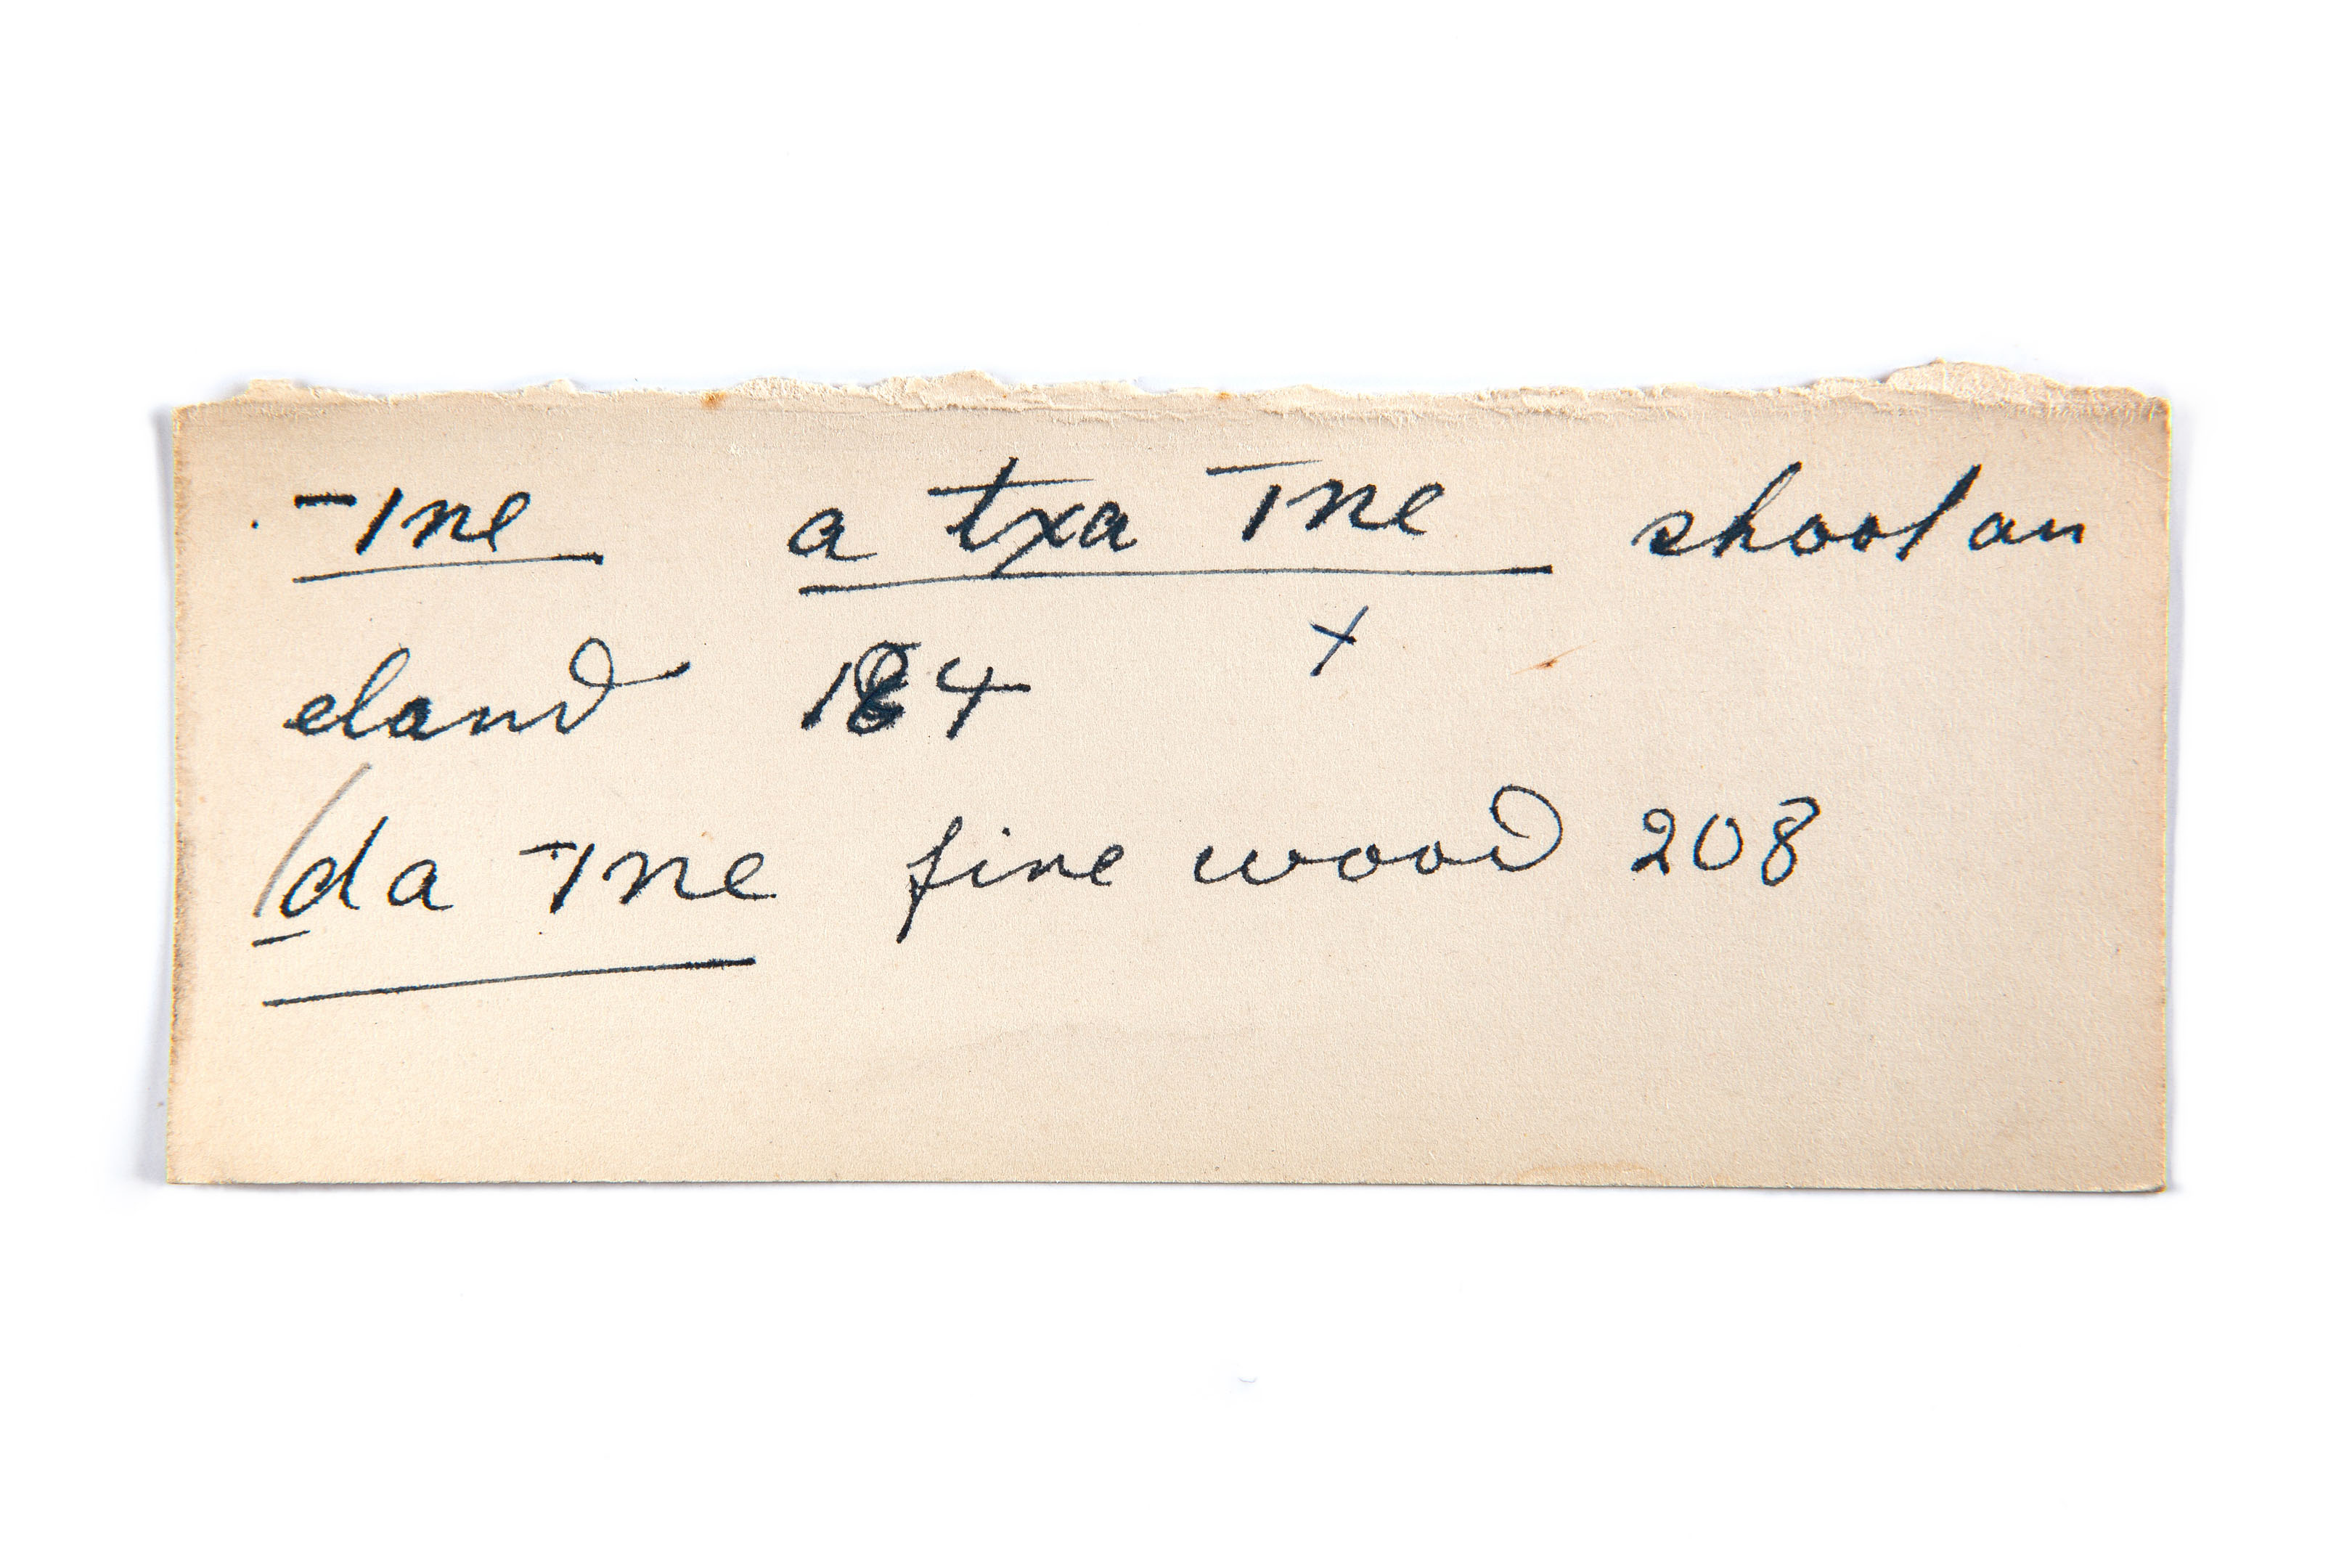 ¯1ne a txa ¯1ne shoot an
eland 184 x
/da ¯1ne fine wood 208